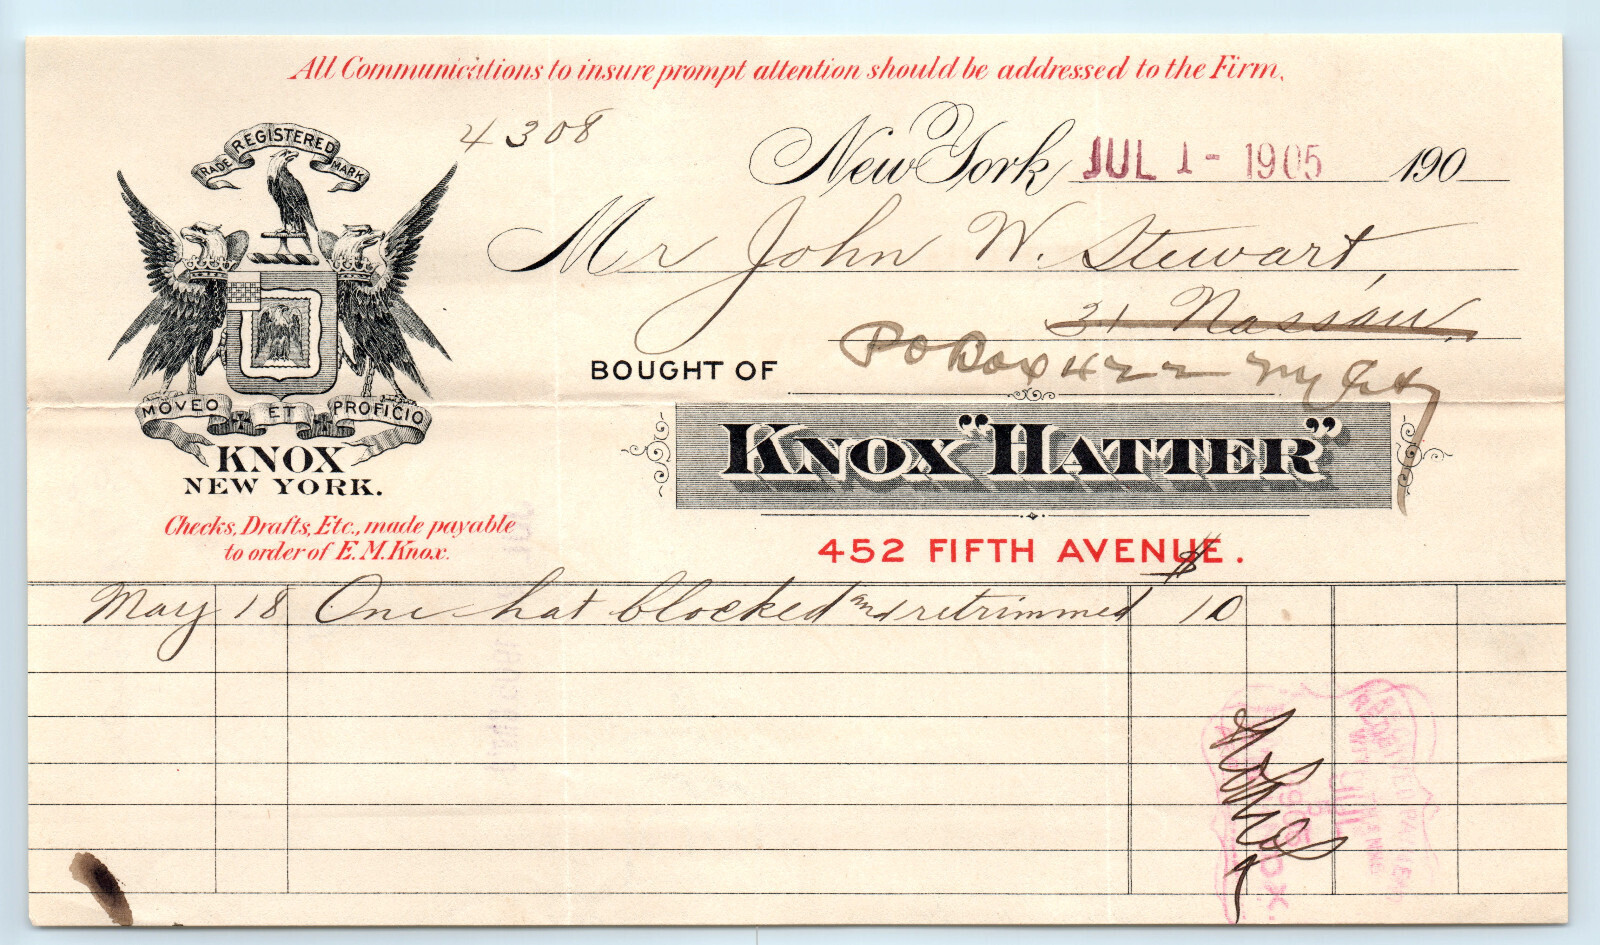 All Communications to insure prompt attention should be addressed to the Firm.
4308
TRADE REGISTERED MARK
New York JUL 1 - 1905 190
Mr John W. Stewart,
31 Nassau
PO Box 422 NY City
BOUGHT OF
MOVEO ET PROFICIO
KNOX
NEW YORK.
KNOX "HATTER"
Checks, Drafts, Etc., made payable
to order of E. M. Knox.
452 FIFTH AVENUE.
$
May 18 One hat blocked and retrimmed 10
RECEIVED PAYMENT
JUL
5
1905
KNOX.